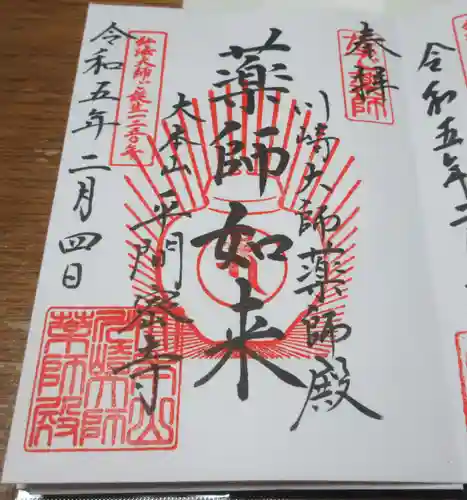 奉拝
川崎大師薬師殿
薬師如来
大本山平間寺
令和五年二月四日
弘法大師ご誕生一二五〇年
令和五年二